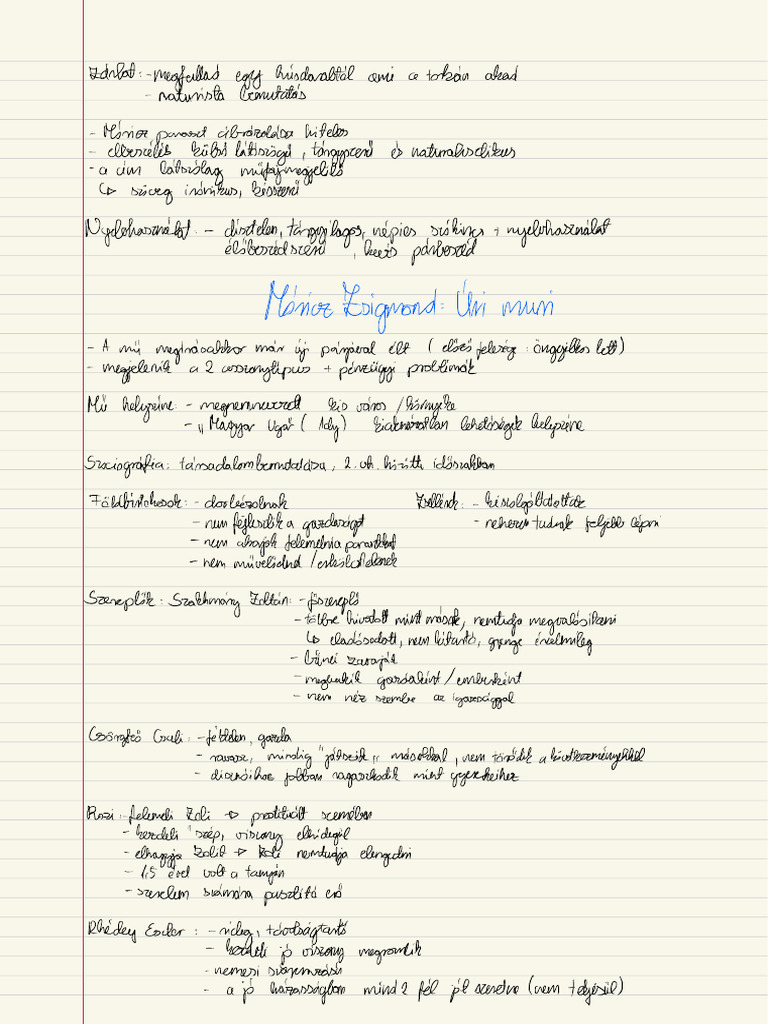 Zárlat: - megfullad egy húsdarabtól ami a torkán akad
- naturista bemutatás
- Móricz paraszt ábrázolása hiteles
- elbeszélés külső látószögű, tárgyszerű és naturalisztikus
- a cím látszólag műfajmegjelölő
↳ szöveg ironikus, késszerű
Nyelvhasználat: - dísztelen, tárgyilagos, népies szókincs + nyelvhasználat
élőbeszédszerű, kevés párbeszéd
Móricz Zsigmond: Úri muri
- A mű megírásakkor már új párjával élt (előző feleség: öngyilkos lett)
- megjelenik a 2 asszonytípus + pénzügyi problémák
Mű helyszíne: - megnevezett kis város / környéke
- "Magyar Ugar" (Ady) kiaknázatlan lehetőségek helyszíne
Szociográfia: társadalom bemutatása, 2. vh. közötti időszakban
Földbirtokosok: - dorbézolnak Zsellérek: - kiszolgáltatottak
- nem fejlesztik a gazdaságot - nehezen tudnak feljebb lépni
- nem akarják felemelni a parasztokat
- nem művelődnek / erkölcstelenek
Szereplők: Szakhmáry Zoltán: - főszereplő
- többre hivatott mint mások, nemtudja megvalósítani
↳ eladósodott, nem kitartó, gyenge érzelmileg
- bűnei zavarják
- megbukik gazdaként / emberként
- nem néz szembe az igazsággal
Csörgheő Csuli: - féktelen, gazda
- ravasz, mindig "játszik" másokkal, nem törődik a következményekkel
- disznóihoz jobban ragaszkodik mint gyerekeihez
Rozi: - felemeli Zoli → prostituált szemében
- kezdeti szép, viszony elhidegül
- elhagyja Zolit → Zoli nemtudja elengedni
- 1,5 évet volt a tanyán
- szerelem számára pusztító erő
Rhédey Eszter: - rideg, távolságtartó
- kezdeti jó viszony megromlik
- nemesi származású
- a jó házasságban mind 2 fél jól szeretne (nem teljesül)